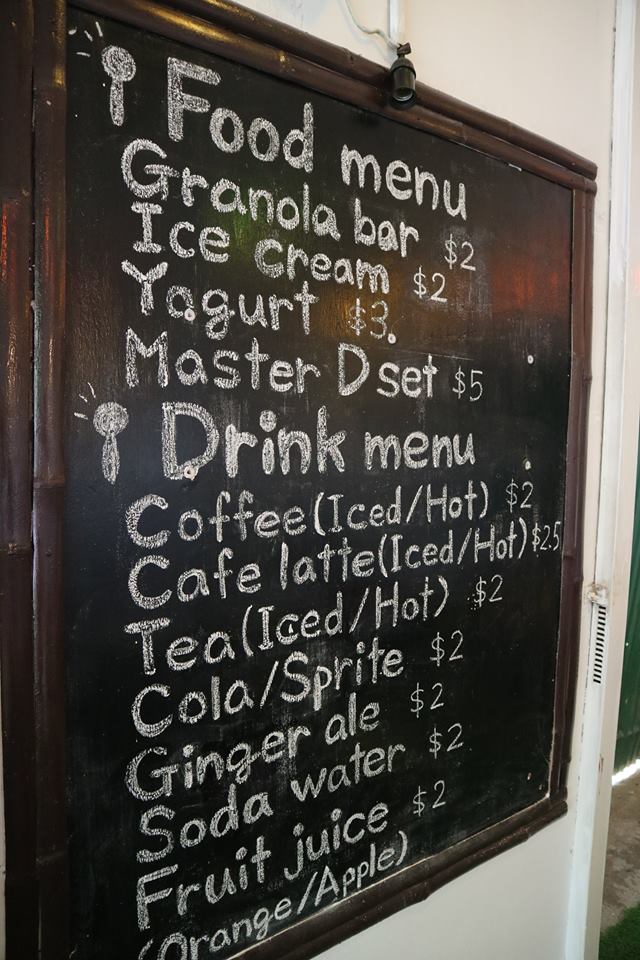 Food menu
Granola bar $2
Ice cream $2
Yogurt $3
Master D set $5
Drink menu
Coffee(Iced/Hot) $2
Cafe latte(Iced/Hot) $2.5
Tea(Iced/Hot) $2
Cola/Sprite $2
Ginger ale $2
Soda water $2
Fruit juice $2
(Orange/Apple)